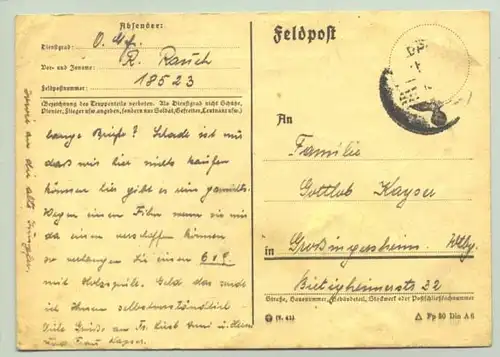 Absender:
Dienstgrad: O. Gef.
Vor- und Zuname: R. Rausch
Feldpostnummer: 18523
(Bezeichnung des Truppenteils verboten. Als Dienstgrad nicht Schütze,
Pionier, Flieger usw. angeben, sondern nur Soldat, Gefreiter, Leutnant usw.)
lange Briefe? Schade ist nur
daß wir hier nichts kaufen
können hier gibt es rein garnichts.
Wegen einem Film wenn sie mir
da einen verschaffen können
so verlangen Sie einen 6x9
mit Holzspule. Geld das werde
ich Ihnen selbstverständlich
Viele Grüße an
und Frau Kayser.
Feldpost
An
Familie
Gottlob Kayser
in Großingersheim. Wttbg.
Bietigheimerstr 32
Straße, Hausnummer, Gebäudeteil, Stockwerk oder Postschließfachnummer
(V. 41)
Fp 50 Din A 6